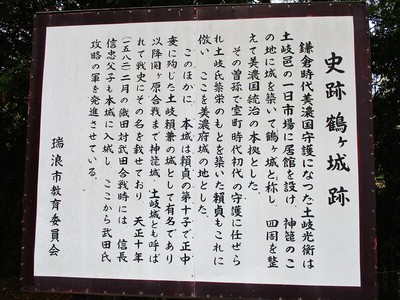 史跡 鶴ヶ城跡
鎌倉時代美濃国守護になった土岐光衡は
土岐邑の一日市場に居館を設け、神箆のこ
の地に城を築いて鶴ヶ城と称し、四周を整
えて美濃国統治の本拠とした。
その曽孫で室町時代初代の守護に任ぜら
れ土岐氏繁栄のもとを築いた頼貞もこれに
倣い、ここを美濃府城の地とした。
このほかに、本城は頼貞の第十子で正中
変に殉じた土岐頼兼の城として有名であり
以降関ヶ原合戦まで神箆城、土岐城とも呼ば
れて戦史にその名を載せており、天正十年
(一五八二)二月の織田対武田合戦時には、信長
信忠父子も本城に入城し、ここから武田氏
攻略の軍を発進させている。
瑞浪市教育委員会